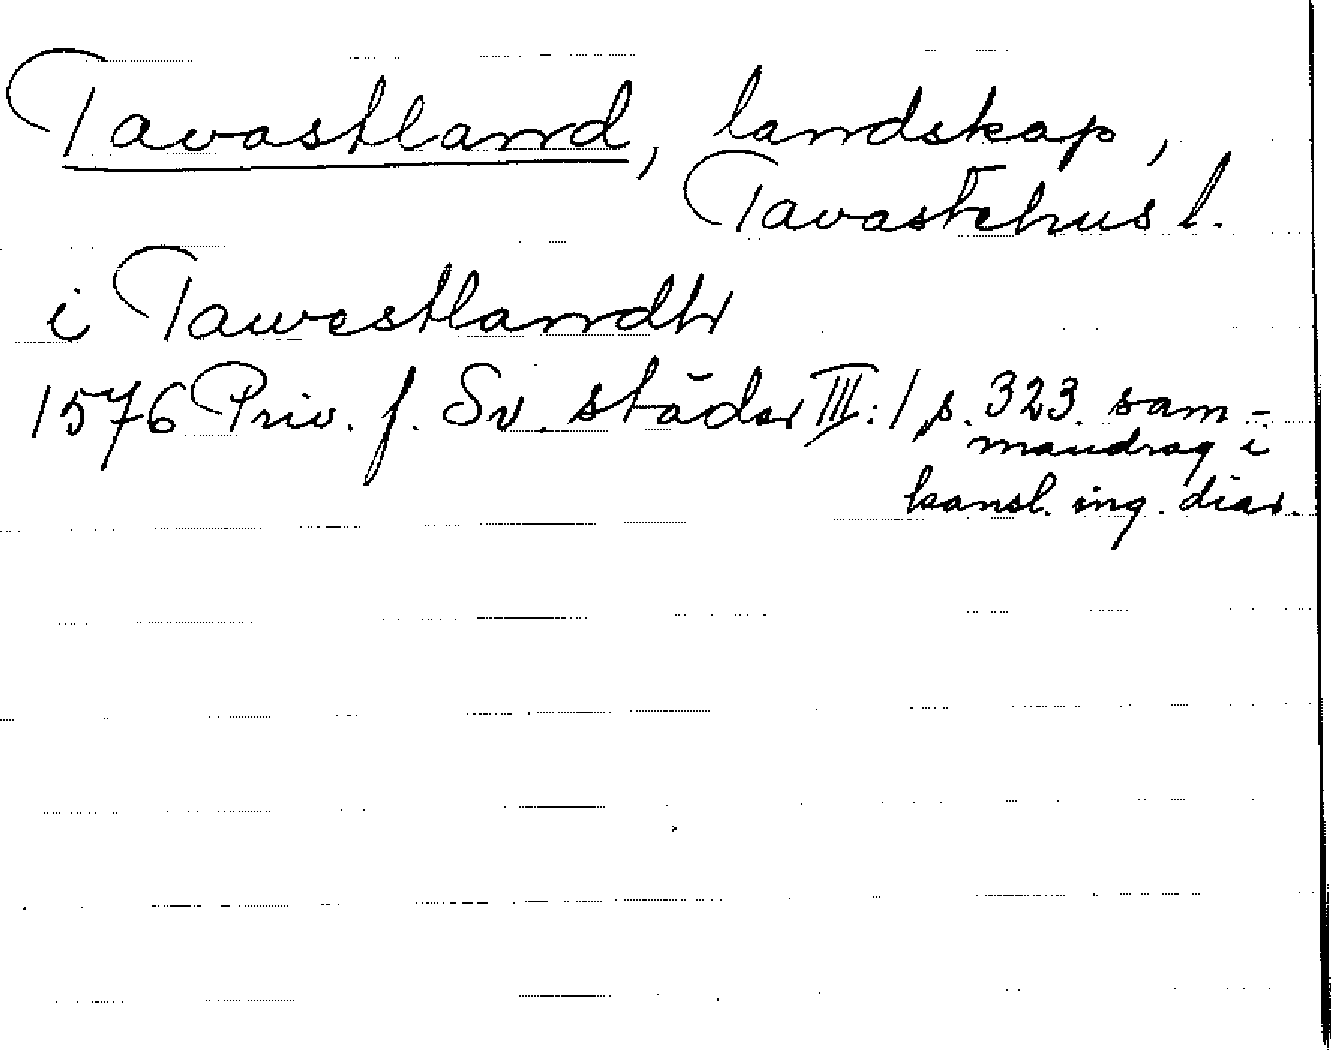 Tavastland, landskap,
Tavastehus l.
i Tawestlandh
1576 Priv. f. Sv. städer III:1 p. 323. sam-
mandrag i
kansl. ing. diar.